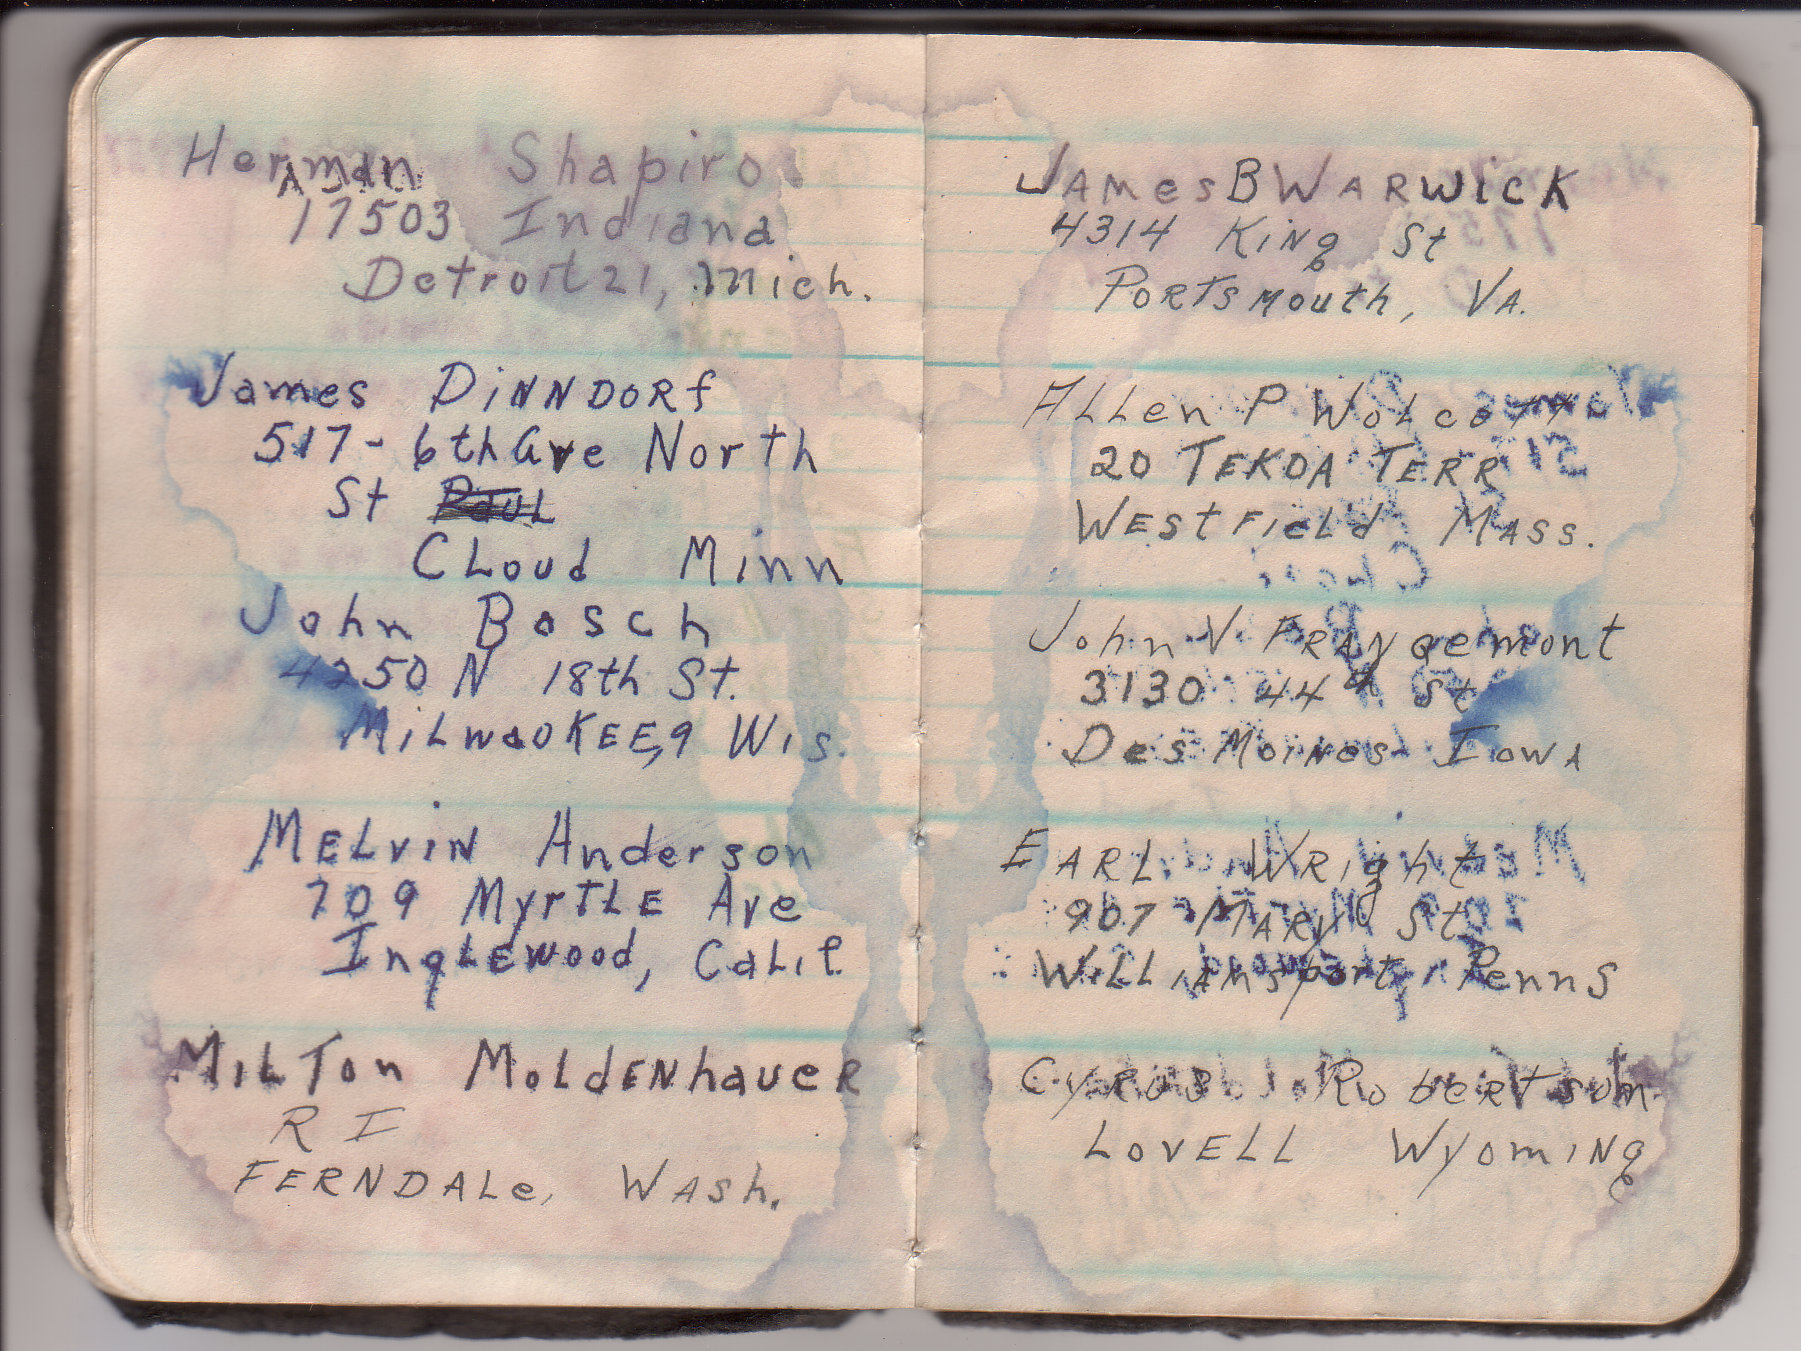 Herman Shapiro
17503 Indiana
Detroit 21, Mich.
James Dinndorf
517 - 6th Ave North
St Paul
Cloud Minn
John Bosch
4250 N 18th St.
Milwaukee, 9 Wis.
Melvin Anderson
709 Myrtle Ave
Inglewood, Calif.
Milton Moldenhauer
R I
Ferndale, Wash.
James B Warwick
4314 King St
Portsmouth, Va.
Allen P Wolcott
20 Tekoa Terr
Westfield Mass.
John V. 
3130 44th St
Des Moines Iowa
Earl Wright
907 Mary St
Williamsport, Penns
Cyrus Robertson
Lovell Wyoming